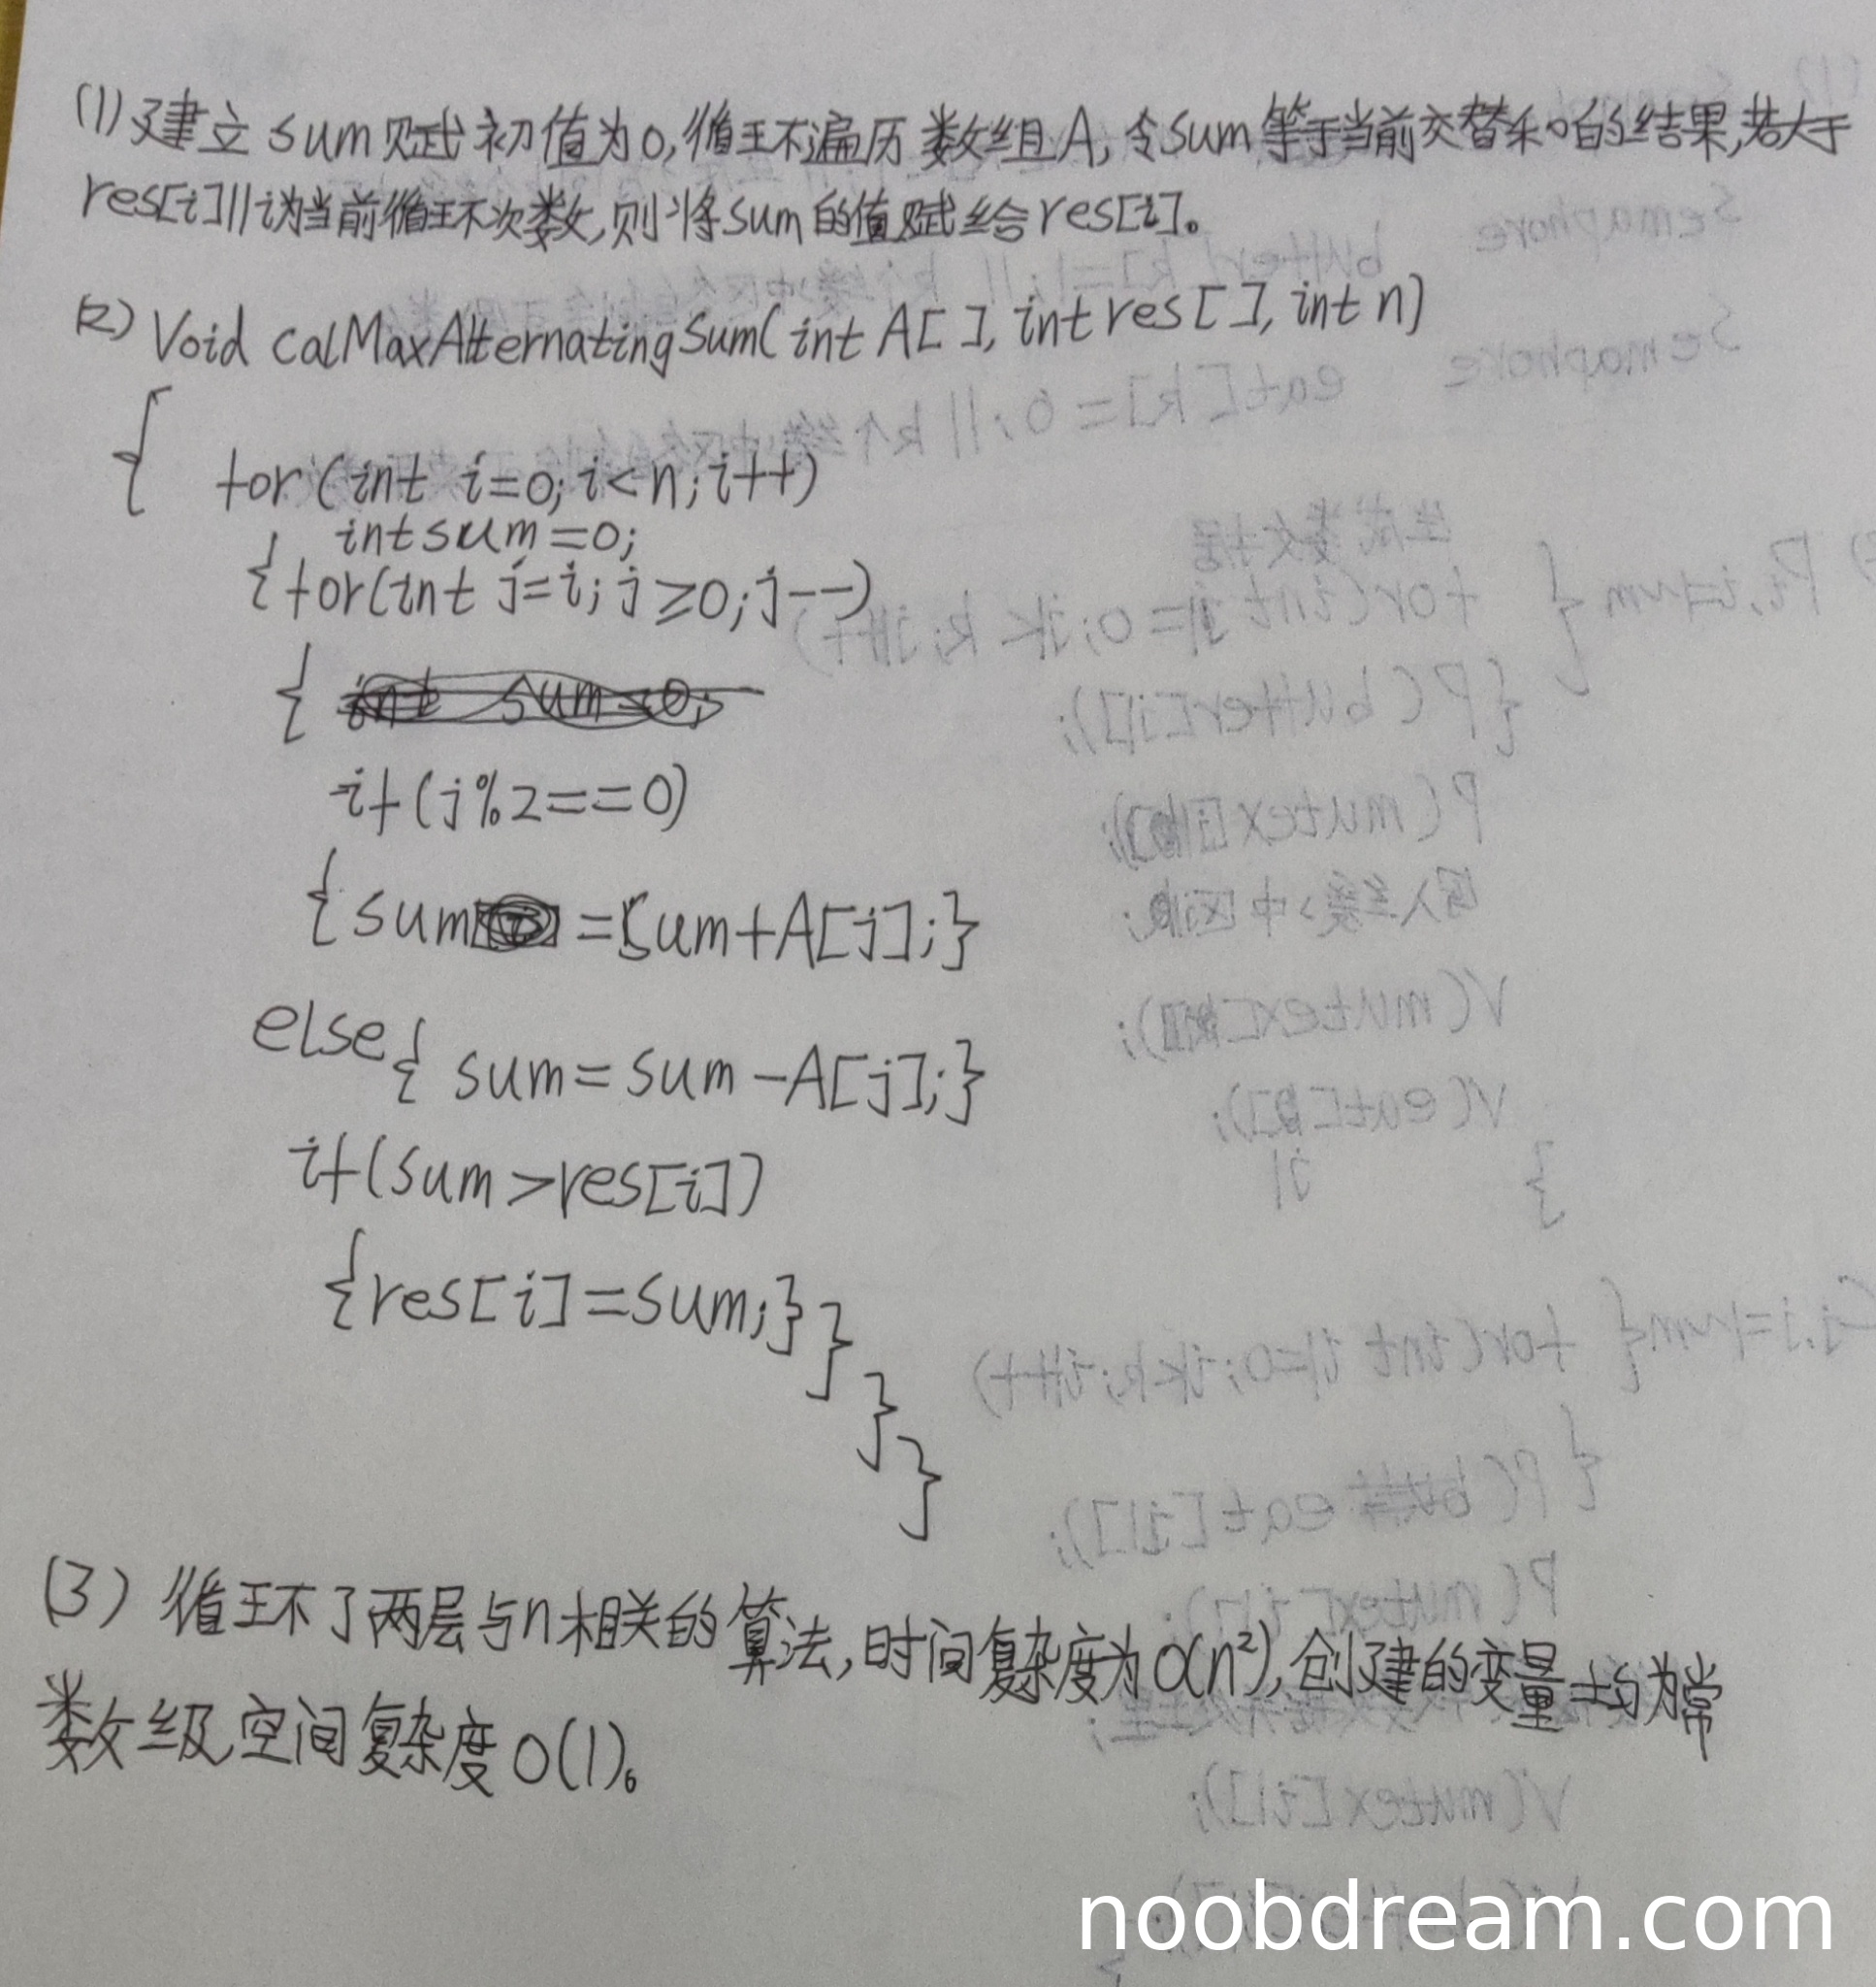 (1)建立sum赋初值为0,循环遍历数组A,令sum等于当前交替和的结果,若大于
res[i]//i为当前循环次数,则将sum的值赋给res[i]。
(2) Void calMaxAlternatingSum(int A[], int res[], int n)
{
for(int i=0;i<n;i++)
int sum=0;
{for(int j=i;j≥0;j--)
{
if(j%2==0)
{sum=sum+A[j];}
else{ sum=sum-A[j];}
if(sum>res[i])
{res[i]=sum;}}
}
}
(3) 循环了两层与n相关的算法,时间复杂度为O(n²),创建的变量均为常
数级,空间复杂度O(1)。
noobdream.com